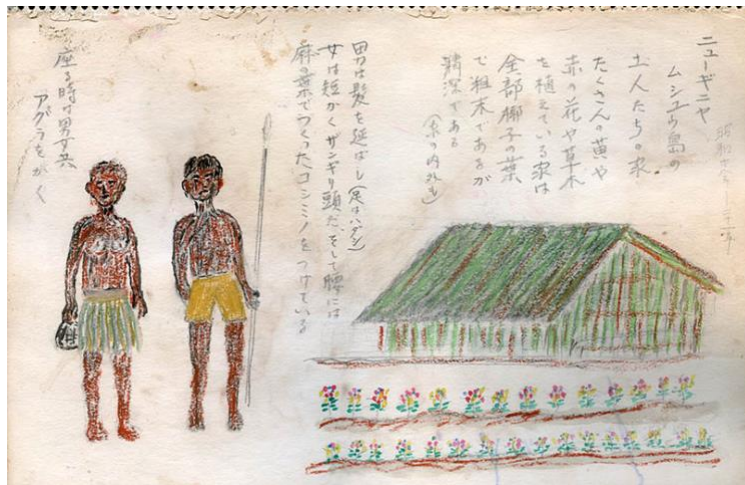 ニューギニヤ
ムシュウ島の
土人たちの家
たくさんの黄や
赤の花や草木
を植えている家は
全部椰子の葉
で粗末であるが
清潔である
(家の内外も)
男は髪を延ばし(足はハダシ)
女は短かくザンギリ頭だ、そして腰には
麻の葉でつくったコシミノをつけている
座る時は男女共
アグラをかく